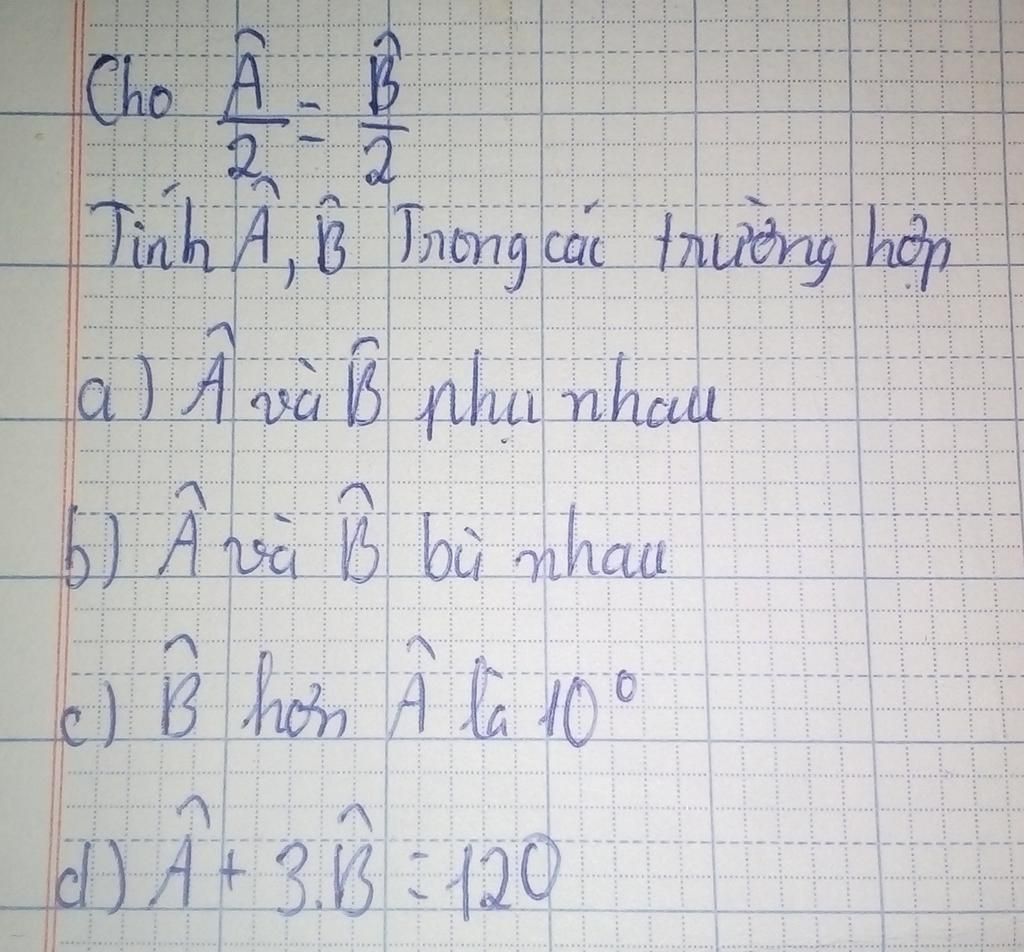 Cho Â/2 = B̂/2
Tính Â, B̂ Trong các trường hợp
a) Â và B̂ phụ nhau
b) Â và B̂ bù nhau
c) B̂ hơn Â là 10°
d) Â + 3.B̂ = 120